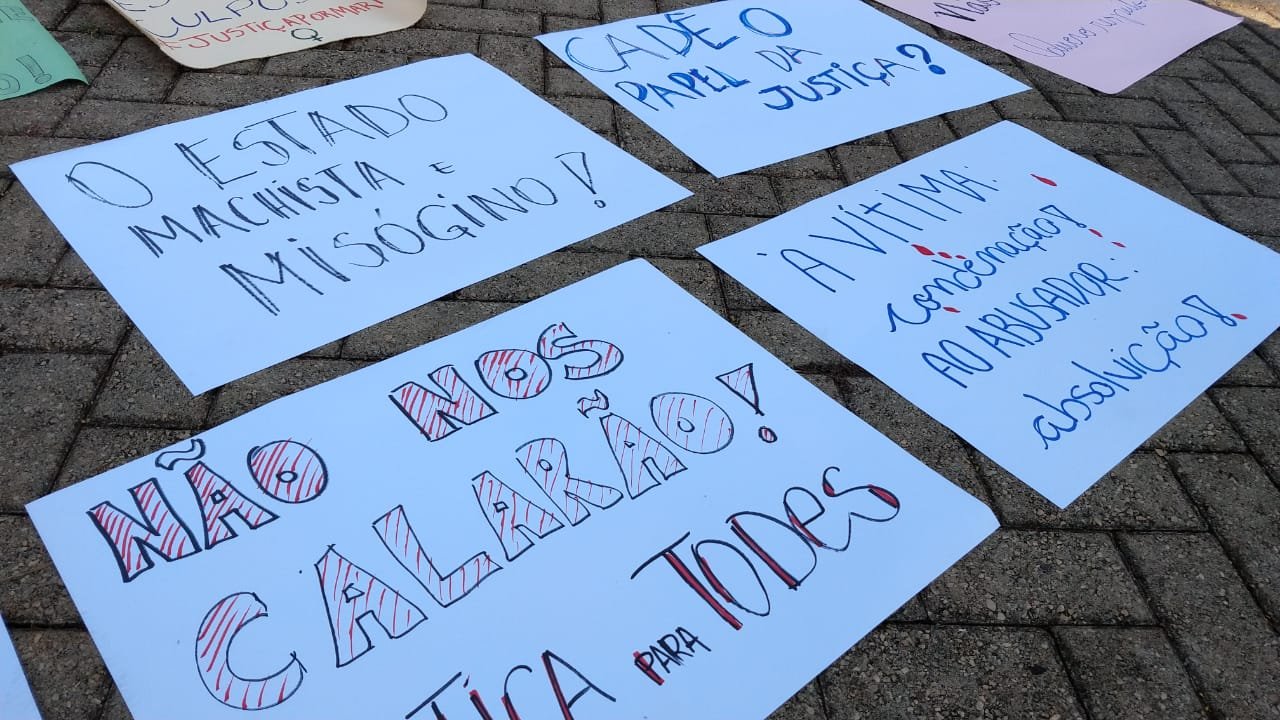 CULPOS
#JUSTIÇAPORMARI
O!
CADÊ O
PAPEL DA
JUSTIÇA?
O ESTADO
MACHISTA E
MISÓGINO!
À VÍTIMA:
condenação!
AO ABUSADOR:
absolvição!
NÃO NOS
CALARÃO!
TIÇA PARA TODES